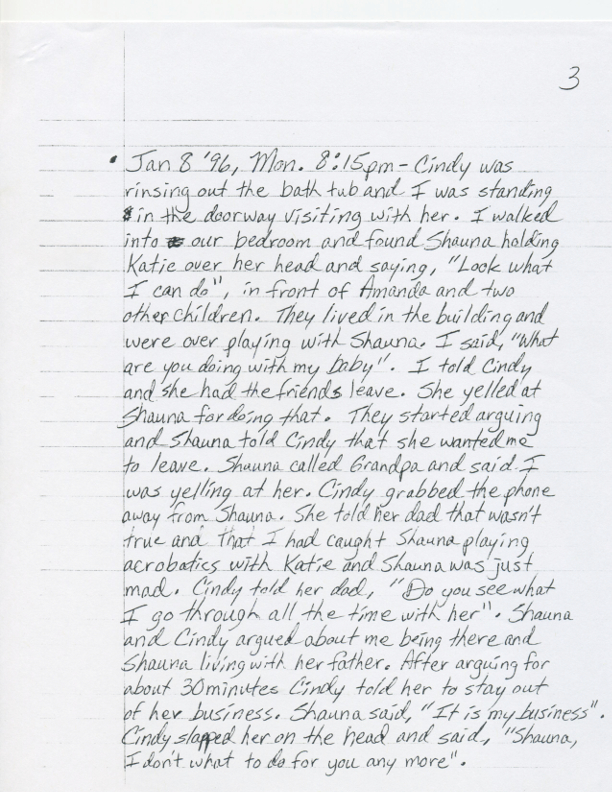 3
• Jan 8 '96, Mon. 8:15pm - Cindy was
rinsing out the bath tub and I was standing
in the doorway visiting with her. I walked
into our bedroom and found Shauna holding
Katie over her head and saying, "Look what
I can do", in front of Amanda and two
other children. They lived in the building and
were over playing with Shauna. I said, "What
are you doing with my baby". I told Cindy
and she had the friends leave. She yelled at
Shauna for doing that. They started arguing
and Shauna told Cindy that she wanted me
to leave. Shauna called Grandpa and said I
was yelling at her. Cindy grabbed the phone
away from Shauna. She told her dad that wasn't
true and that I had caught Shauna playing
acrobatics with Katie and Shauna was just
mad. Cindy told her dad, "Do you see what
I go through all the time with her". Shauna
and Cindy argued about me being there and
Shauna living with her father. After arguing for
about 30 minutes Cindy told her to stay out
of her business. Shauna said, "It is my business".
Cindy slapped her on the head and said, "Shauna,
I don't what to do for you any more".